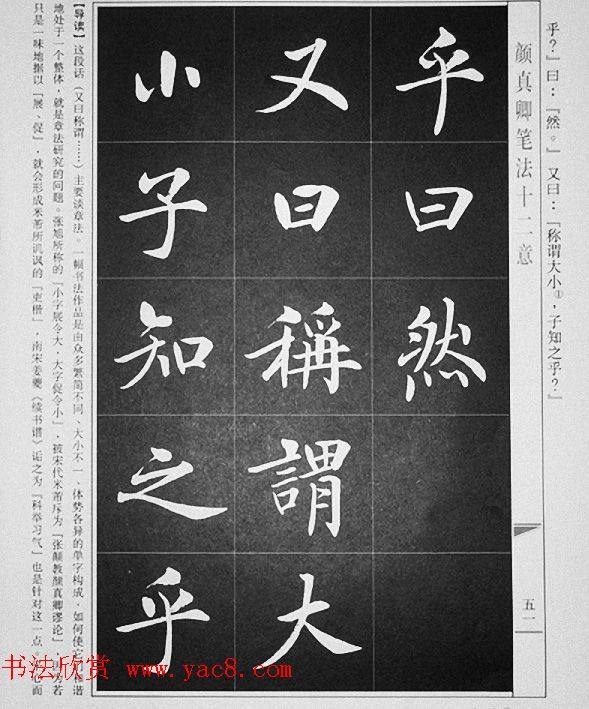 乎？」曰：「然。」又曰：「称谓大小①，子知之乎？」
颜真卿笔法十二意
五一
乎曰然
又曰稱謂大
小子知之乎
【导读】这段话（又曰称谓……）主要谈章法。一幅书法作品是由众多繁简不同、大小不一、体势各异的单字构成，如何使它和谐
地处于一个整体，就是章法研究的问题。张旭所称的「小字展令大，大字促令小」，被宋代米芾斥为「张颠教颜真卿谬论」，因为若
只是一味地据以「展、促」，就会形成米芾所讥讽的「吏楷」，南宋姜夔《续书谱》诟之为「科举习气」也是针对这一点。
书法欣赏 www.yac8.com